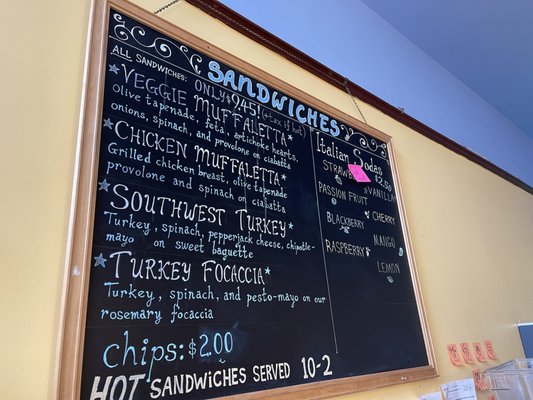 SANDWICHES
ALL SANDWICHES: ONLY $9.45! (+tax if hot)
★VEGGIE MUFFALETTA★
Olive tapenade, feta, artichoke hearts,
onions, spinach, and provolone on ciabatta
★CHICKEN MUFFALETTA★
Grilled chicken breast, olive tapenade
provolone and spinach on ciabatta
★SOUTHWEST TURKEY★
Turkey, spinach, pepperjack cheese, chipotle-
mayo on sweet baguette
★TURKEY FOCACCIA★
Turkey, spinach, and pesto-mayo on our
rosemary focaccia
chips: $2.00
HOT SANDWICHES SERVED 10-2
Italian Sodas
$2.50
VANILLA
PASSION FRUIT
CHERRY
BLACKBERRY
MANGO
RASPBERRY
LEMON